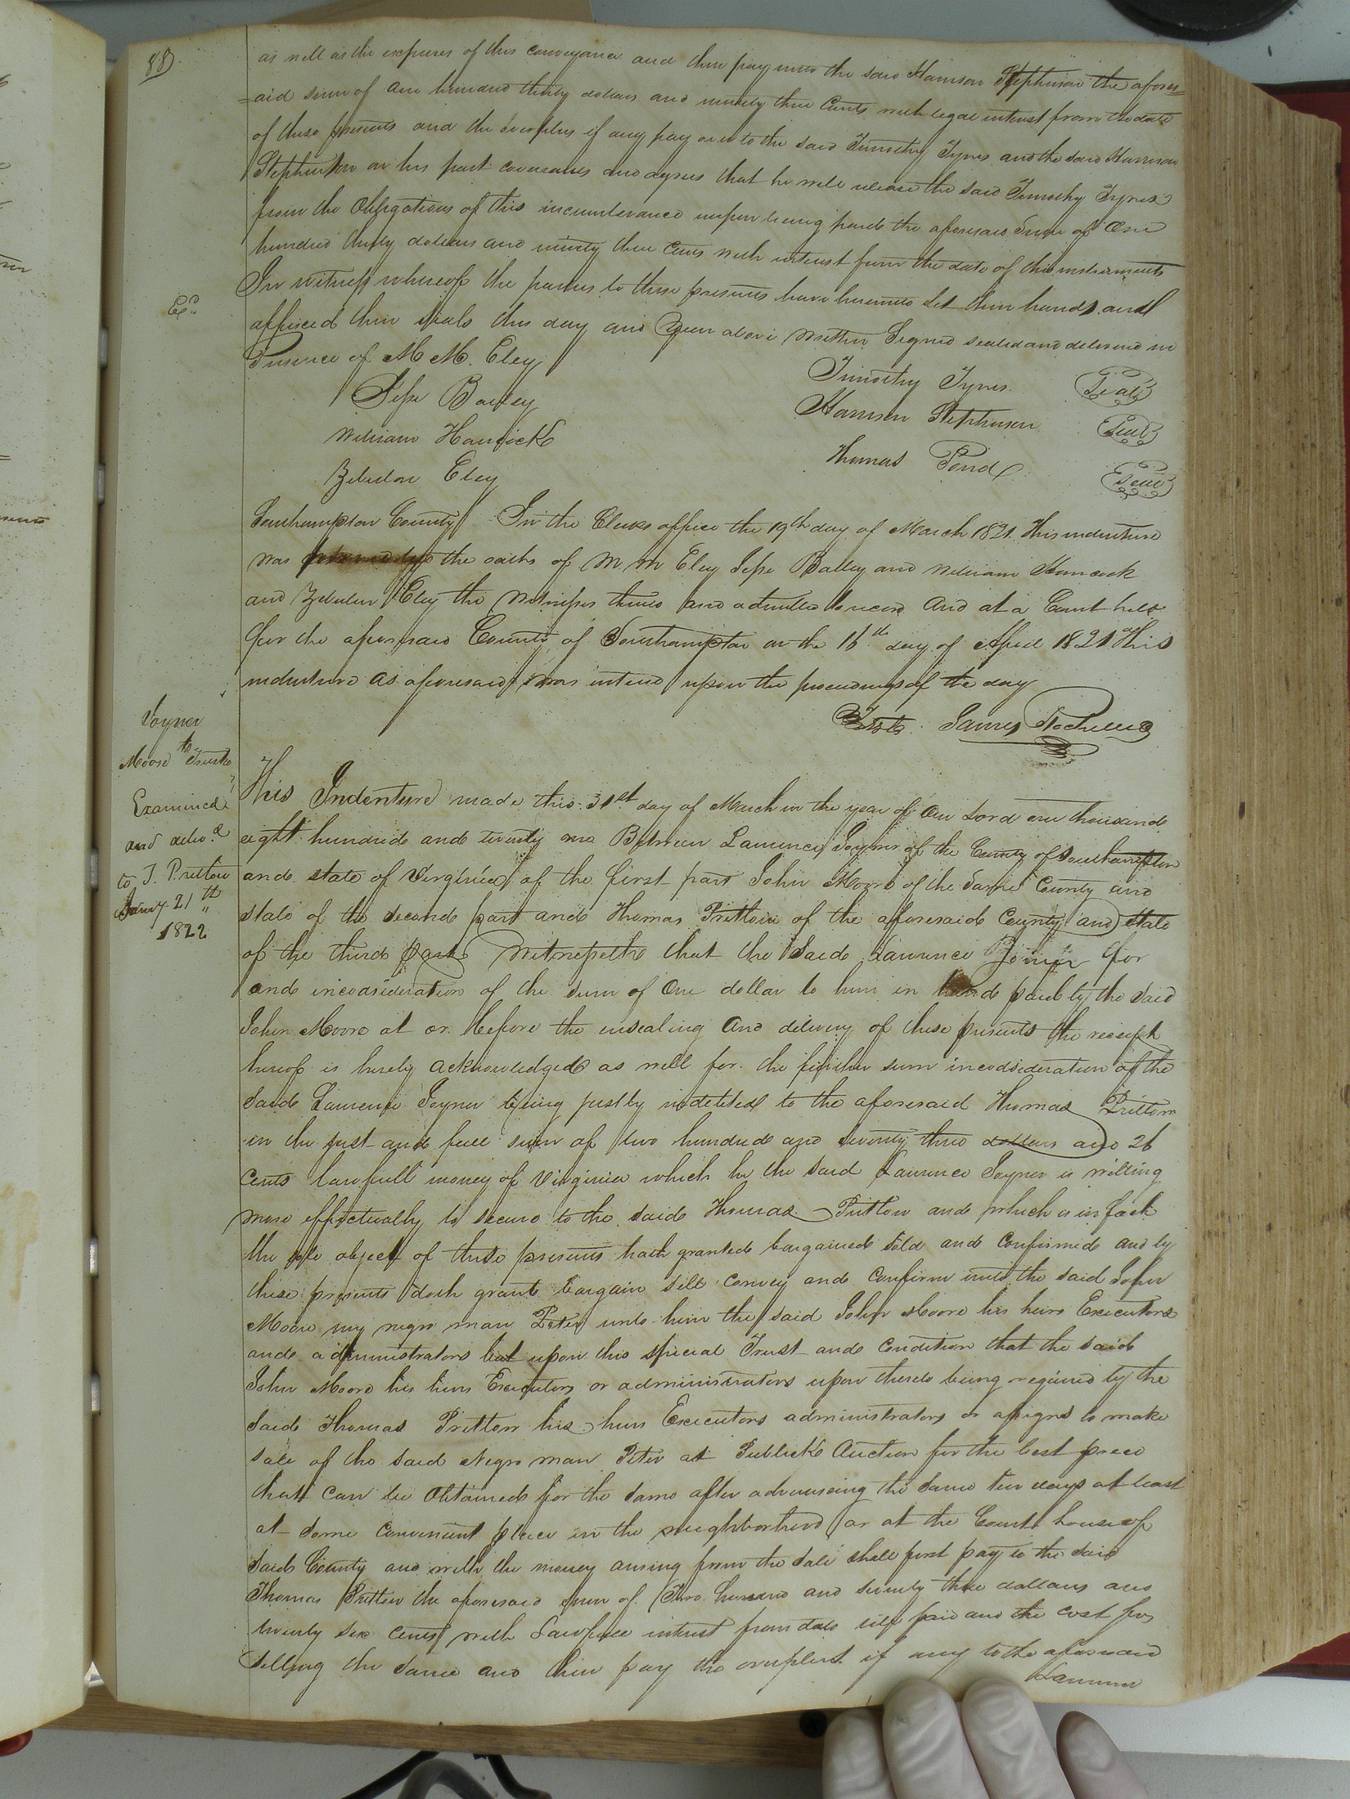 88)
as well as the expenses of this conveyance and then pay unto the said Harrison Stephenson the afores=
=aid sum of one hundred thirty dollars and ninety three Cents with legal interest from the date
of these presents and the overplus if any pay over to the said Timothy Tynes and the said Harrison
Stephenson on his part covenants and agrees that he will release the said Timothy Tynes
from the Obligations of this incumberance upon being paid the aforesaid Sum of One
hundred thirty dollars and ninety three cents with interest from the date of this instrument
In witness whereof the parties to these presents have hereunto Set their hands and
affixed their seals this day and Year above written Signed sealed and delivered in
Presence of M M. Eley
Timothy Tynes (Seal)
Jesse Bailey
Harrison Stephenson (Seal)
William Hancock
Thomas Pond (Seal)
Zebulon Eley
Southampton County In the Clerks office the 19th day of March 1821 This indenture
was the oaths of M M Eley Jesse Bailey and William Hancock
and Zebulon Eley the Witnesses thereto and admitted to record And at a Court held
for the aforesaid County of Southampton on the 16th day of April 1821 This
indenture as aforesaid was entered upon the proceedings of the day
Teste. James Rochelle
Joyner
to
Moore Truste
Examined
and delivd
to T. Pretlow
Jany 21th
1822
This Indenture made this 31st day of March in the year of Our Lord one thousand
eight hundred and twenty one Between Lawrence Joyner of the County of Southampton
and state of Virginia of the first part John Moore of the Same County and
state of the second part and Thomas Pretlow of the aforesaid County and State
of the third part Witnesseth that the Said Lawrence Joiner for
and inconsideration of the sum of One dollar to him in hand paid by the Said
John Moore at or before the ensealing and delivery of these presents the receipt
hereof is hereby acknowledged as well for the further sum inconsideration of the
Said Lawrence Joyner being justly indebted to the aforesaid Thomas Pretlow
in the just and full sum of two hundred and seventy three dollars and 26
cents lawfull money of Virginia which he the Said Lawrence Joyner is willing
more effectually to secure to the said Thomas Pretlow and which is in fact
the sole object of these presents hath granted bargained sold and confirmed and by
these presents doth grant bargain sell convey and confirm unto the said John
Moore my negro man Peter unto him the said John Moore his heirs Executors
and administrators but upon this special Trust and condition that the said
John Moore his heirs Executors or administrators upon thereto being required by the
Said Thomas Pretlow his heirs Executors administrators or assigns to make
sale of the said Negro man Peter at Publick Auction for the best price
that can be Obtained for the same after advertising the same ten days at least
at some convenient place in the neighborhood or at the Court house of
Said County and with the money arising from the Sale shall first pay to the said
Thomas Pretlow the aforesaid sum of Two hundred and seventy three dollars and
twenty six cents with Lawfull interest from date till paid and the cost for
Selling the same and then pay the overplus if any to the aforesaid
Lawrence